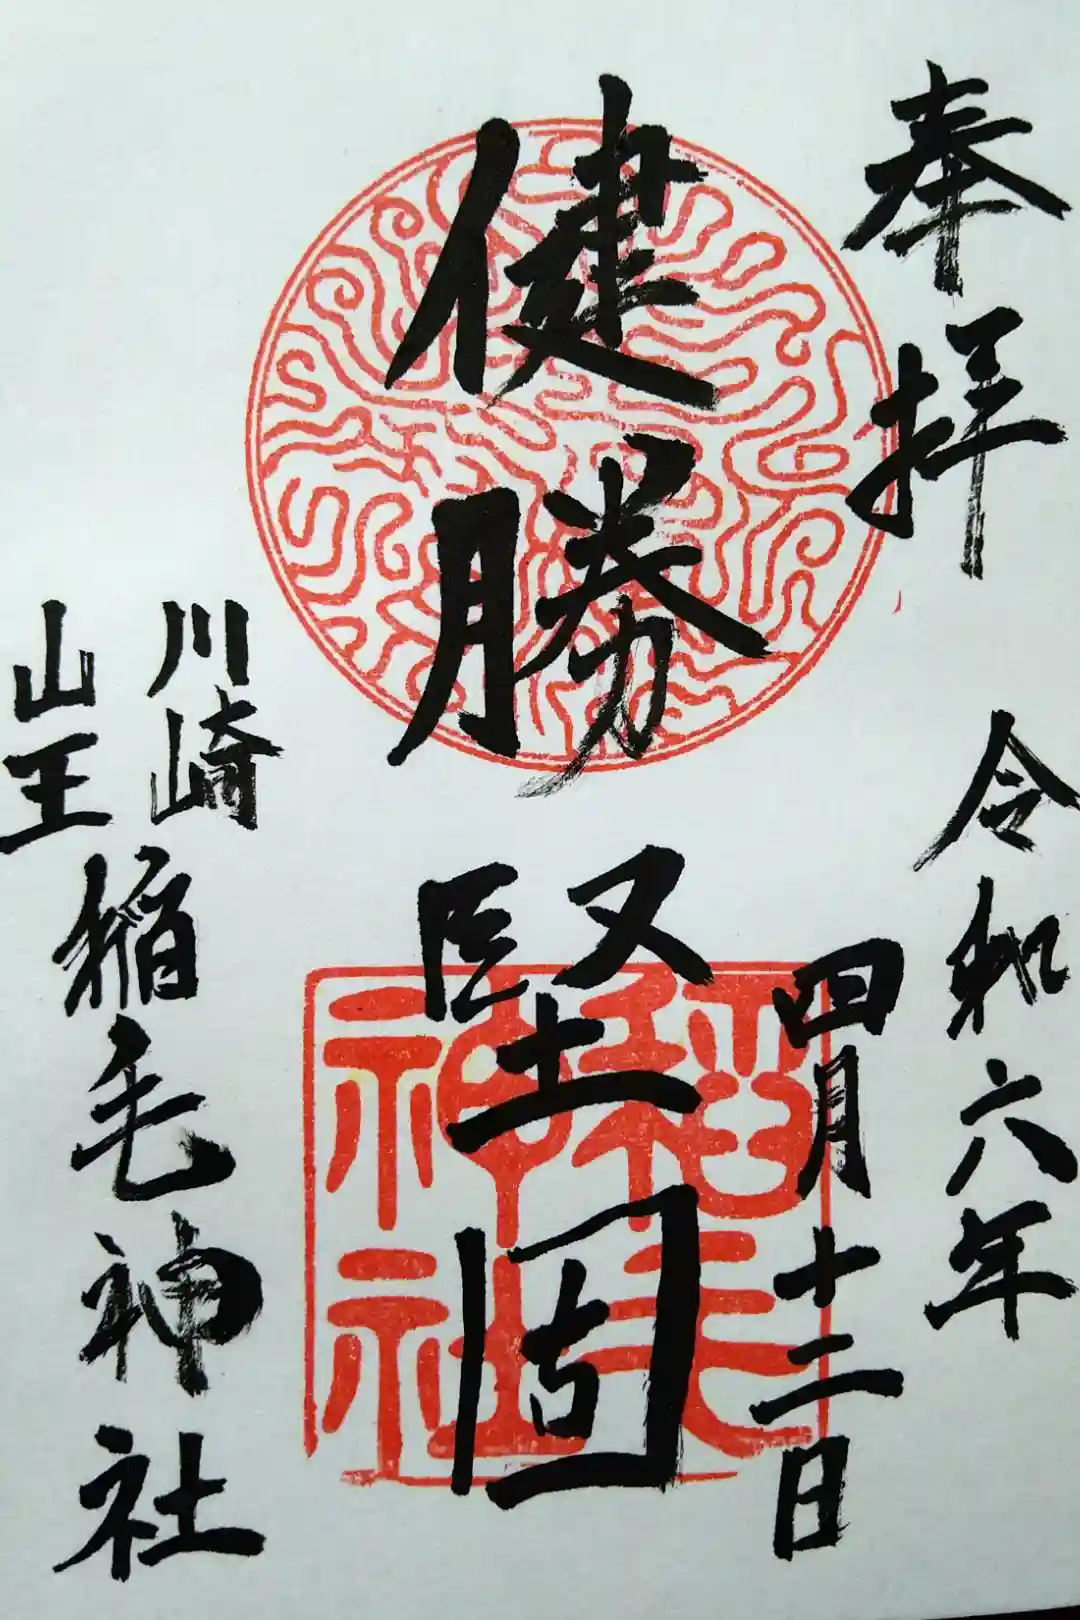 奉拝
令和六年
四月十二日
健勝
堅固
川崎
山王
稲毛神社
稲毛
神社